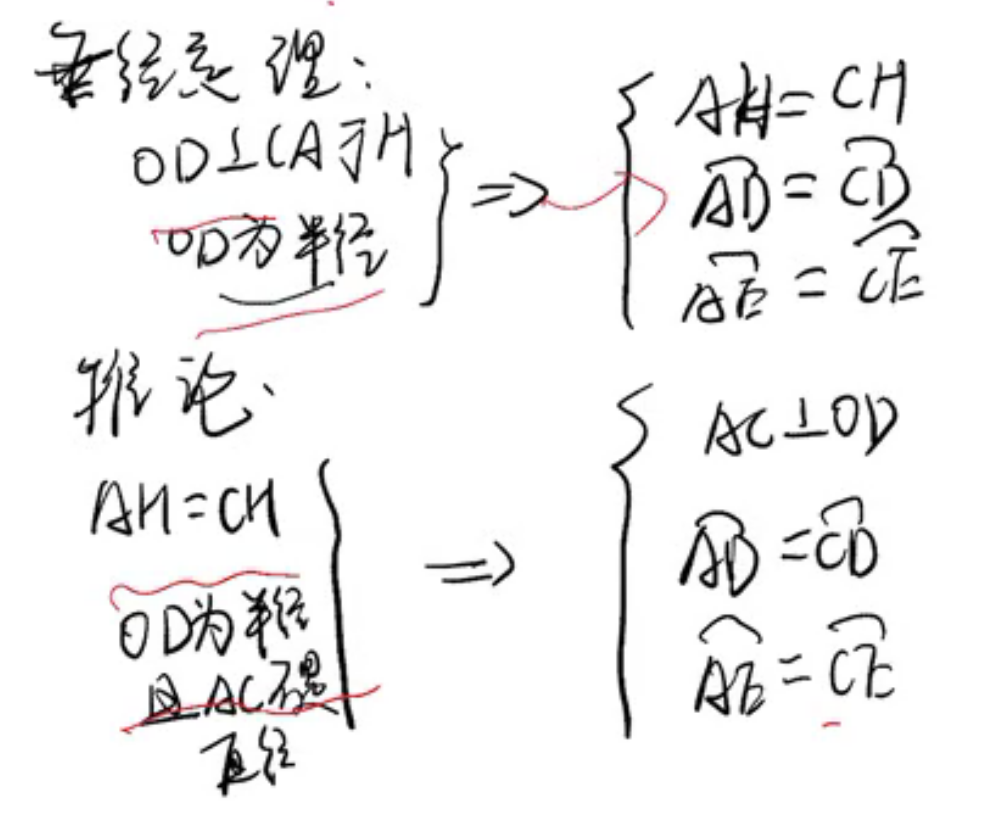 垂径定理:
OD⊥CA于H
OD为半径
} ⇒ {
AH=CH
⌒AD=⌒CD
⌒AE=⌒CE
推论:
AH=CH
OD为半径
且AC不是
直径
} ⇒ {
AC⊥OD
⌒AD=⌒CD
⌒AE=⌒CE